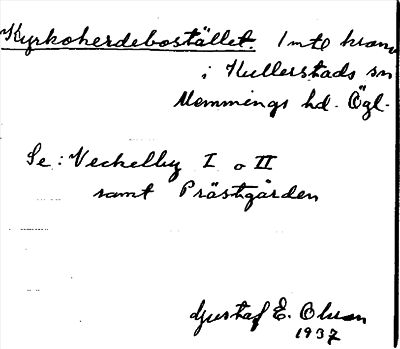 Kyrkoherdebostället. Inte krono
i Kullerstads sn
Memmings hd. Ögl.
Se: Veckelby I o II
samt Prästgården
Gustaf E. Olsson
1937